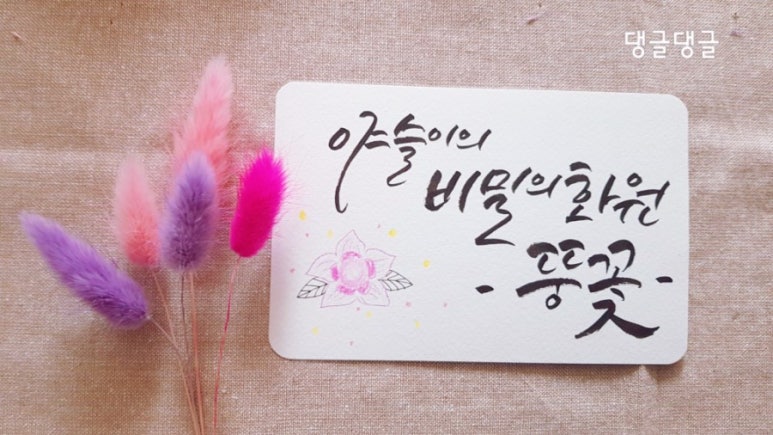 댕글댕글
야슬이의
비밀의 화원
-뚱꽃-